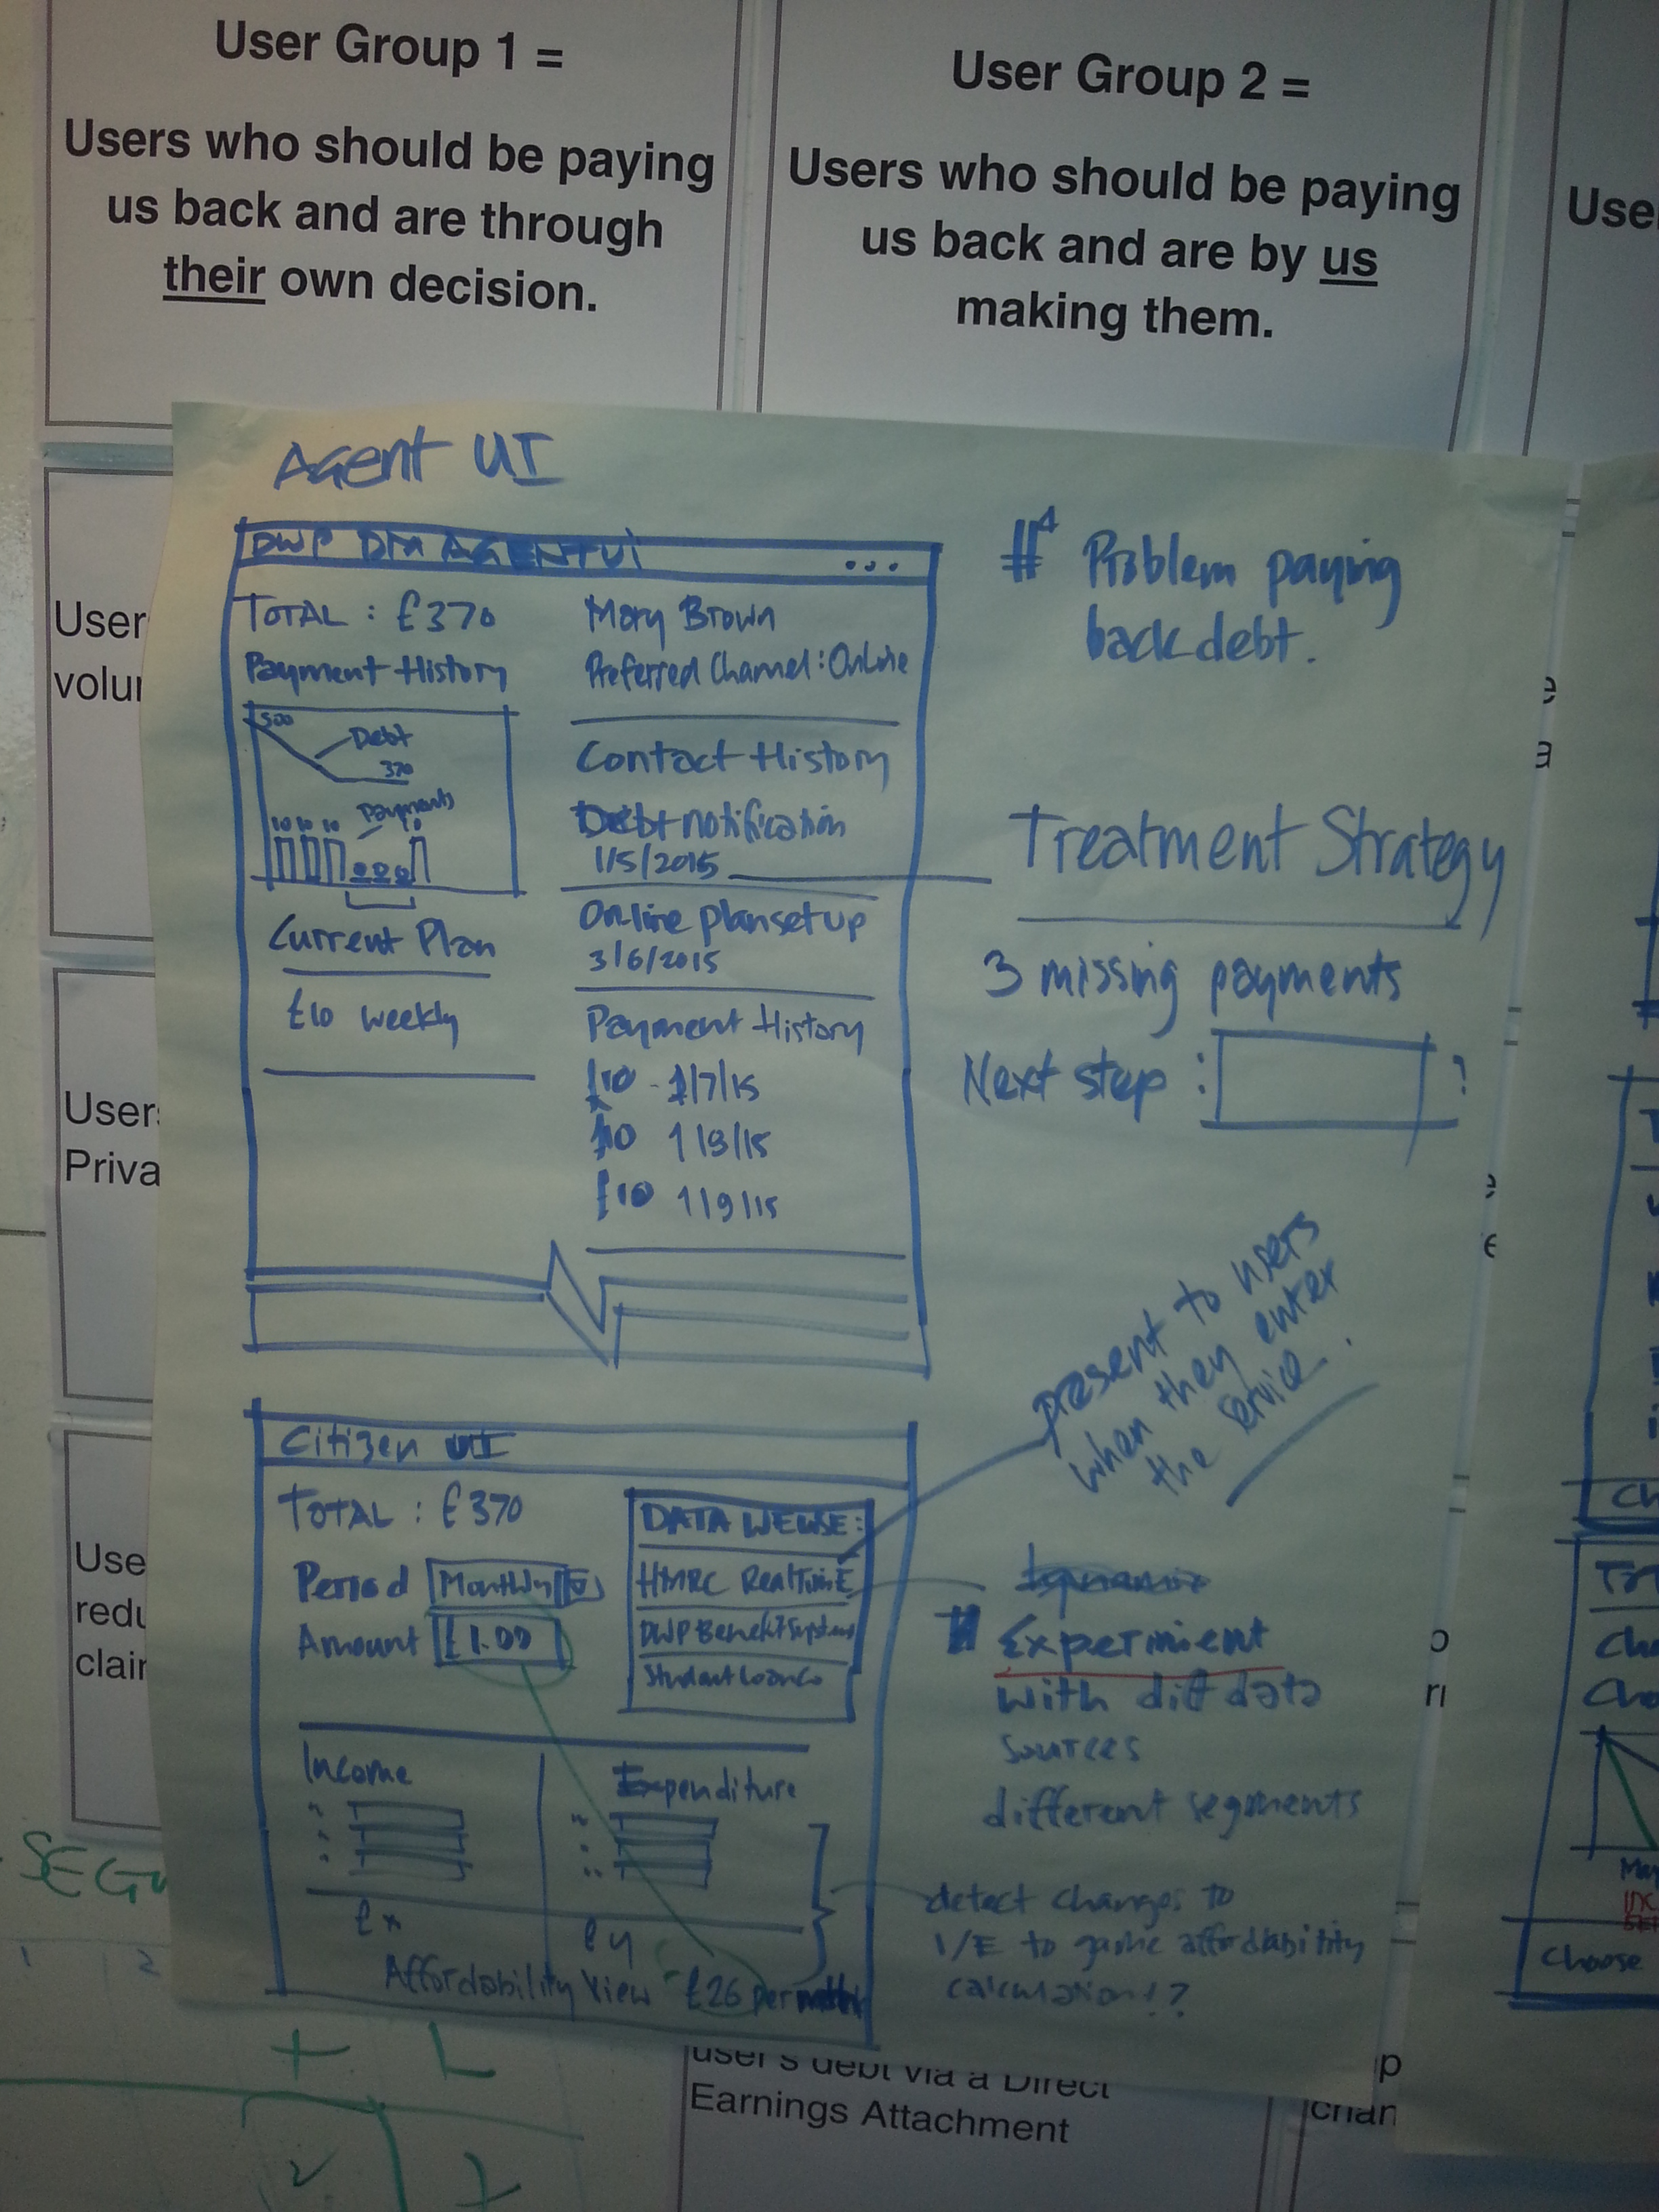 User Group 1 =
Users who should be paying
us back and are through
their own decision.
User Group 2 =
Users who should be paying
us back and are by us
making them.
Use
User
volu
User
Priva
Use
redu
clai
Agent UI
DWP DM AGENT UI
TOTAL : £370
Payment History
500
Debt
370
Payments
10 10 10
10
0 0 0
Current Plan
£10 weekly
Mary Brown
Preferred Channel : Online
Contact History
Debt notification
1/5/2015
Online plan setup
3/6/2015
Payment History
£10 - 1/7/15
£10 1/8/15
£10 1/9/15
#4 Problem paying
back debt.
Treatment Strategy
3 missing payments
Next step : ?
present to users
when they enter
the service.
Citizen UI
TOTAL : £370
Period Monthly
Amount £1.00
DATA WE USE:
HMRC RealTime
DWP Benefit Systems
Student Loan Co
Income
Expenditure
£x
£y
Affordability View £26 per month
# Experiment
with diff data
sources
different segments
detect changes to
I/E to game affordability
calculation!?
SEG
1 2
user's debt via a Direct
Earnings Attachment
chan
Choose